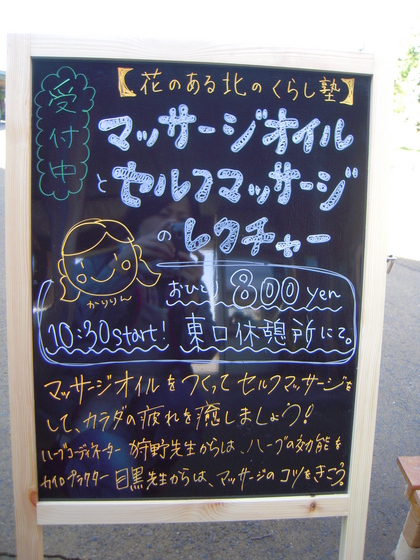 受付中
【花のある北のくらし塾】
マッサージオイル
とセルフマッサージ
のレクチャー
かりりん
おひとり 800yen
10:30start! 東口休憩所にて。
マッサージオイルをつくってセルフマッサージを
して、カラダの疲れを癒しましょう!
ハーブコーディネーター 狩野先生からは、ハーブの効能を
カイロプラクター 目黒先生からは、マッサージのコツをきこう。